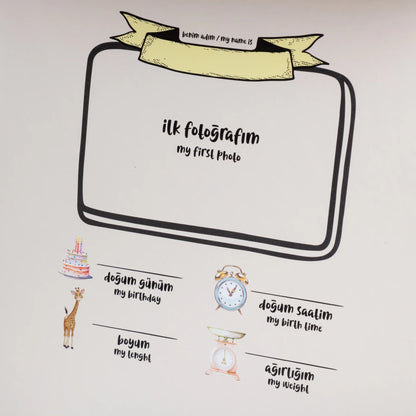 benim adım / my name is
ilk fotoğrafım
my first photo
doğum günüm
my birthday
doğum saatim
my birth time
boyum
my lenght
ağırlığım
my weight